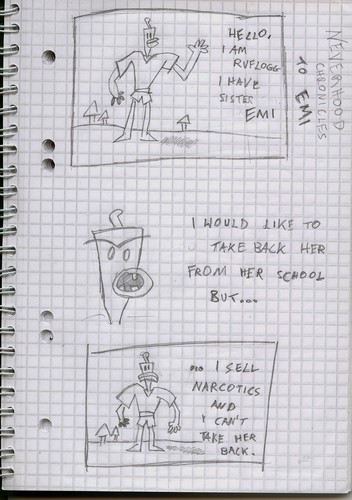 NEVERHOOD
CHRONICLES
TO EMI
HELLO.
I AM
RUFLOGG
I HAVE
SISTER
EMI
I WOULD LIKE TO
TAKE BACK HER
FROM HER SCHOOL
BUT...
... I SELL
NARCOTICS
AND
I CAN'T
TAKE HER
BACK.